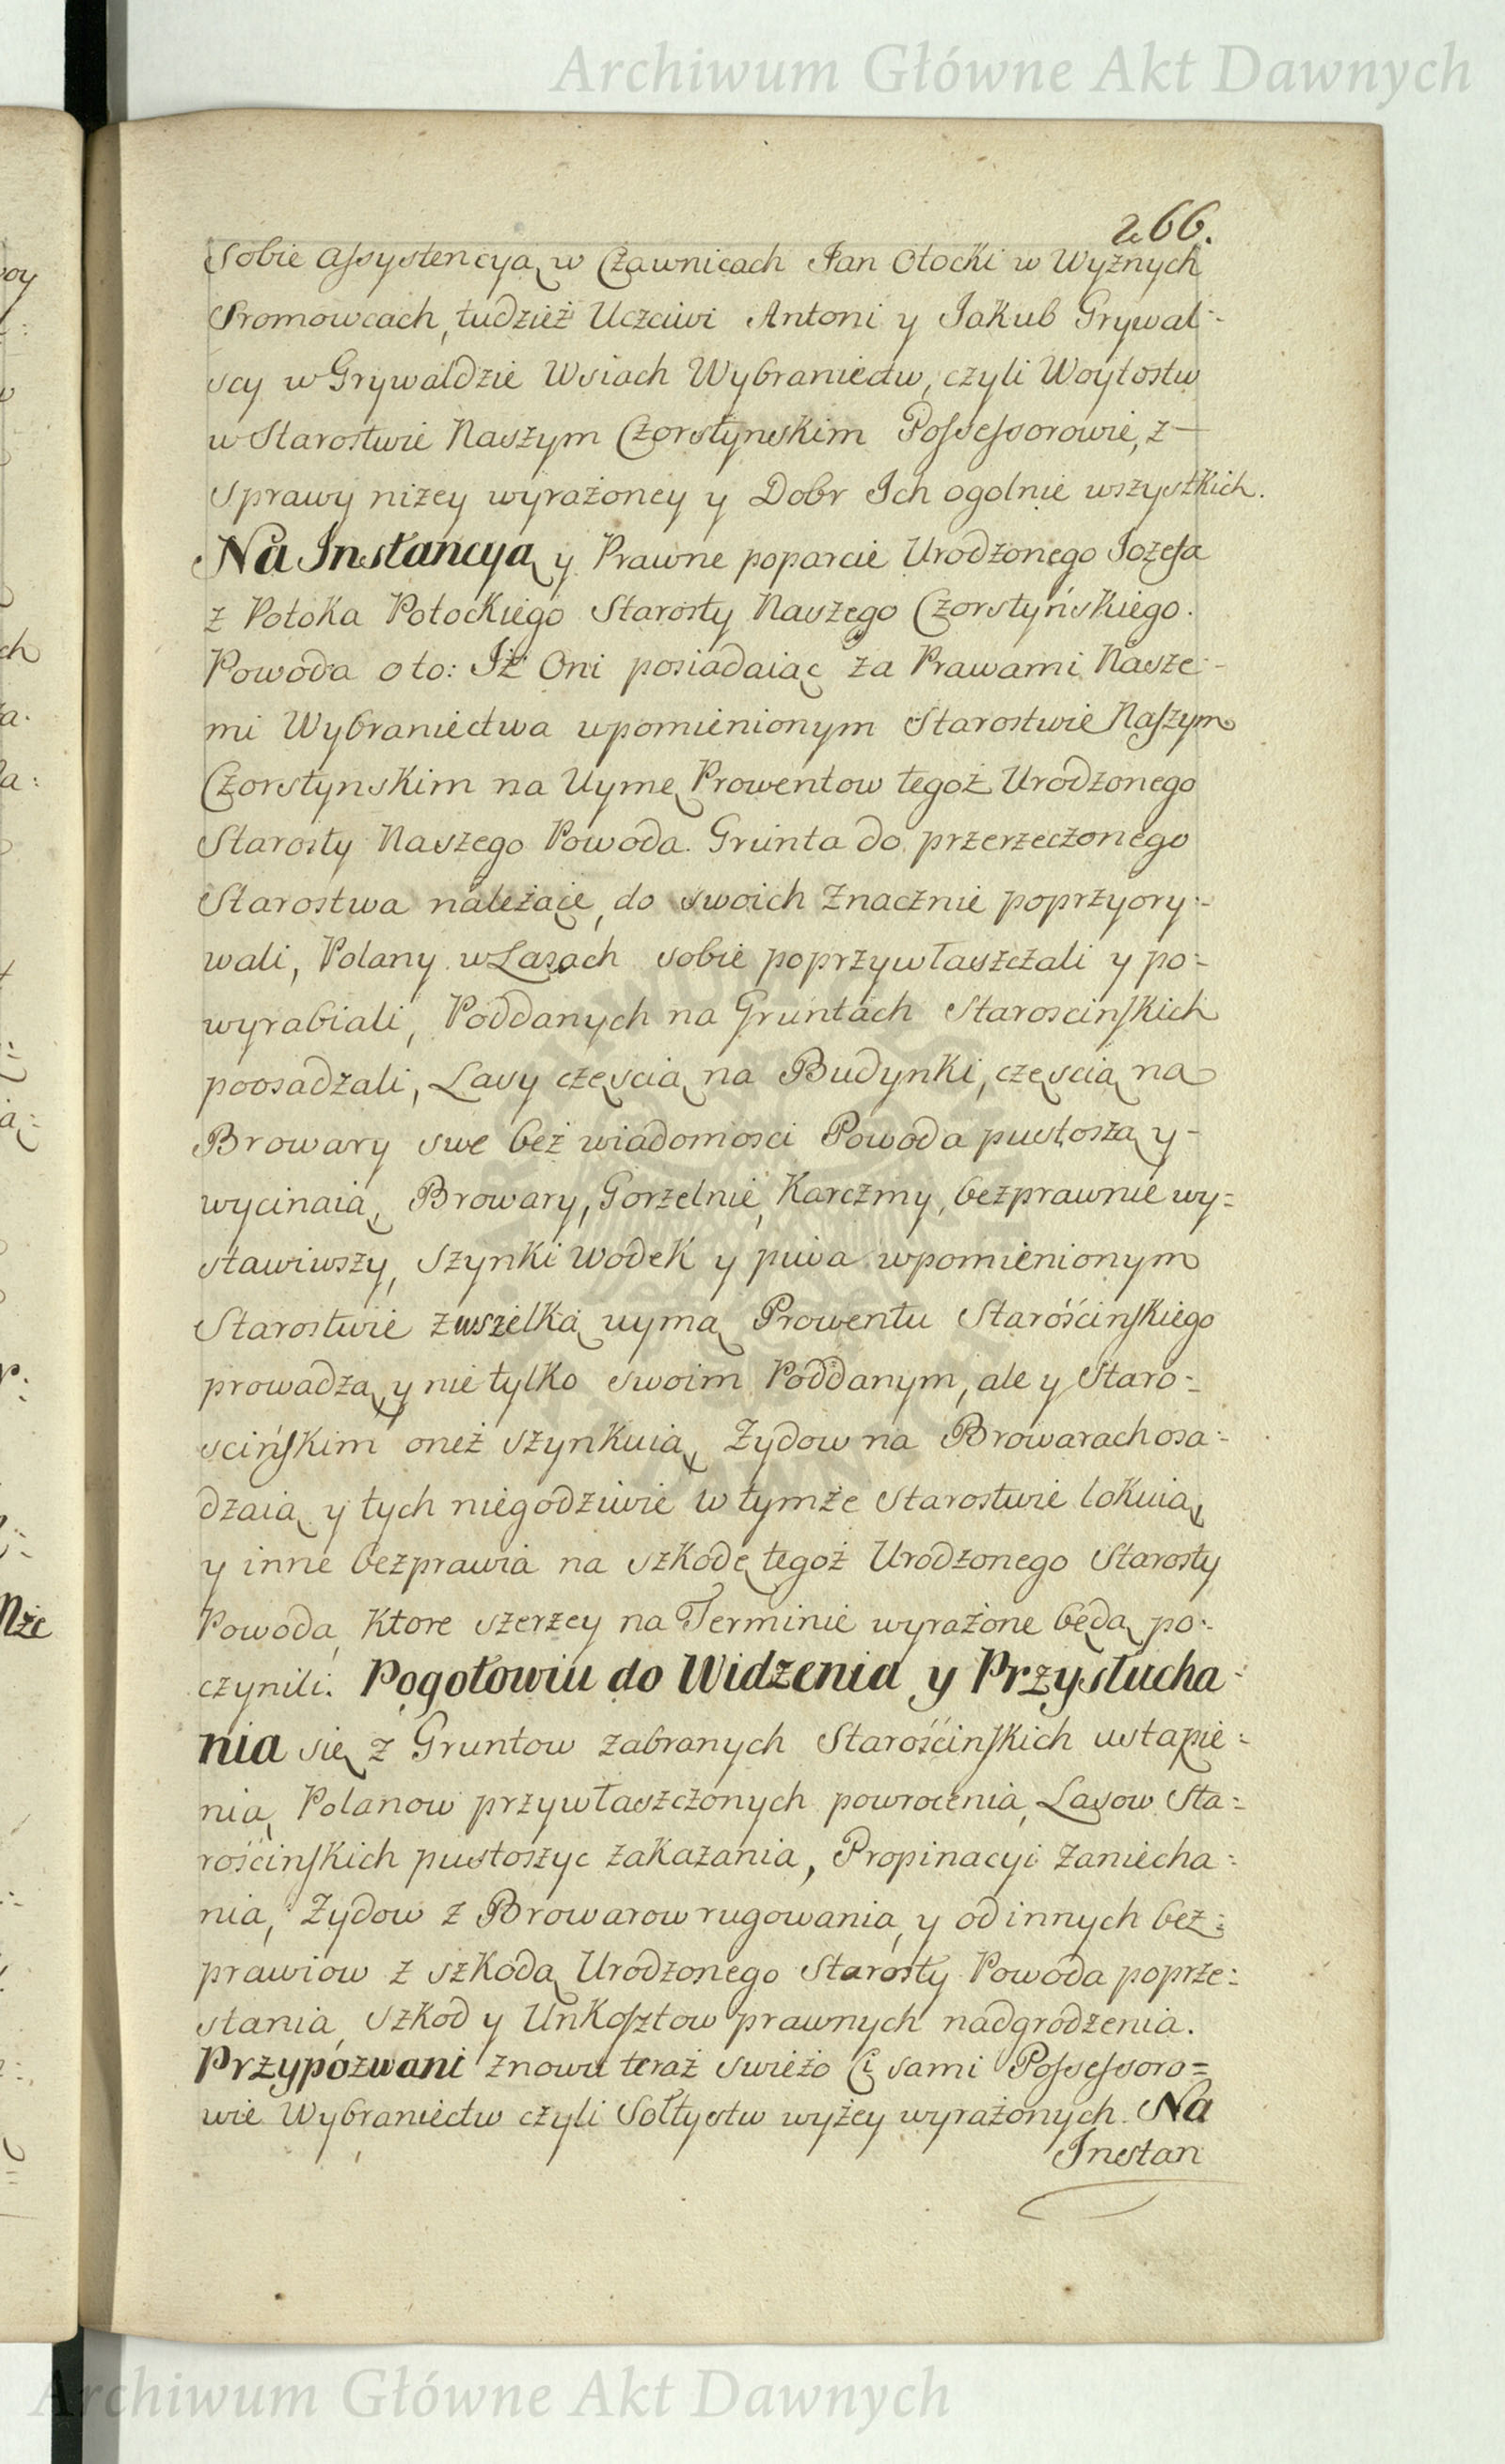 Archiwum Główne Akt Dawnych
266.
Sobie Assystencyą w Czawnicach Jan Otocki w Wyżnych
Sromowcach, tudzież Uczciwi Antoni y Jakub Grywal-
scy w Grywałdzie Wsiach Wybraniectw, czyli Woytostw
w Starostwie Naszym Czorstynskim Possessorowie, z
sprawy niżey wyrażoney y Dobr Ich ogolnie wszystkich.
Na Instancyą y Prawne poparcie Urodzonego Jozefa
z Potoka Potockiego Starosty Naszego Czorstyńskiego.
Powoda oto: Iż Oni posiadaiąc za Prawami Nasze-
mi Wybraniectwa upomienionym Starostwie Naszym
Czorstynskim na Uymę Prowentow tegoż Urodzonego
Starosty Naszego Powoda. Grunta do przerzeczonego
Starostwa należące, do swoich znacznie poprzyory-
wali, Polany w Lasach sobie poprzywłaszczali y po-
wyrabiali, Poddanych na Gruntach Staroscinskich
poosadzali, Lasy częscią na Budynki, częscią na
Browary swe bez wiadomosci Powoda pustoszą y-
wycinaią, Browary, Gorzelnie, Karczmy, bezprawnie wy=
stawiwszy, szynki wodek y piwa wpomienionym
Starostwie zwszelką uymą Prowentu Starościnskiego
prowadzą, y nie tylko swoim Poddanym, ale y Staro=
scińskim oneż szynkuią, Zydow na Browarach osa-
dzaią y tych niegodziwie w tymże Starostwie lokuią,
y inne bezprawia na szkodę tegoż Urodzonego Starosty
Powoda, Ktore szerzey na Terminie wyrażone będą, po-
czynili. Pogotowiu do Widzenia y Przysłucha-
nia się z Gruntow zabranych Starościnskich ustąpie=
nia, Polanow przywłaszczonych powrocenia, Lasow Sta=
rościnskich pustoszyc zakazania, Propinacyi zaniecha=
nia, Zydow z Browarow rugowania, y od innych bez=
prawiow z szkodą Urodzonego Starosty Powoda poprze=
stania, szkod y Unkosztow prawnych nadgrodzenia.
Przypozwani znowu teraz swieżo Ci sami Possessoro=
wie Wybraniectw czyli Sołtystw wyżey wyrażonych. Na
Instan
Archiwum Główne Akt Dawnych